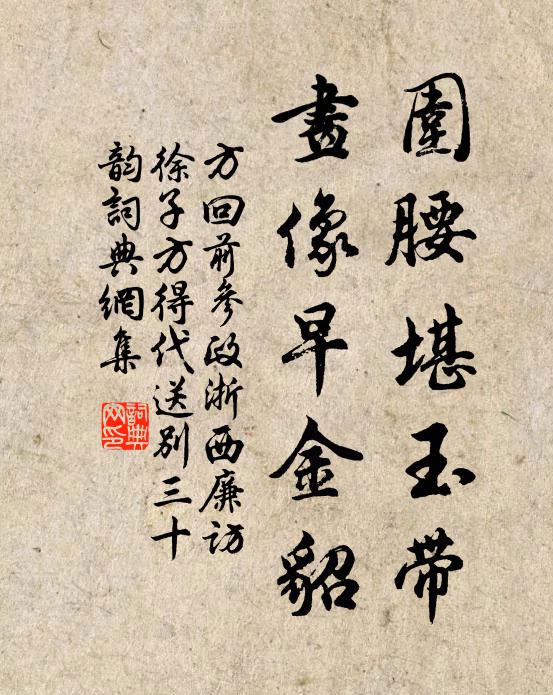 圍腰堪玉带
畫像早金貂
方回前參政浙西廉访
徐子方得代送别三十
韵詞典網集
詞典网印